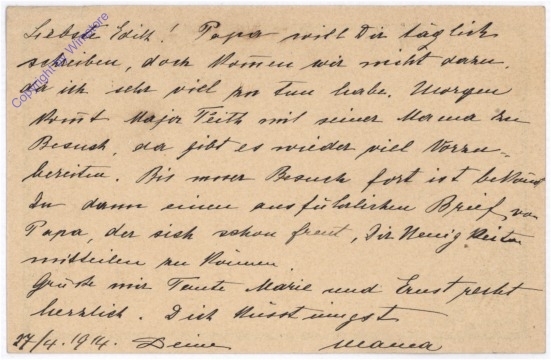 Liebste Edith! Papa will Dir täglich
schreiben, doch kom̄en wir nicht dazu,
da ich sehr viel zu tun habe. Morgen
kom̄t Major Teith mit seiner Mama zu
Besuch, da gibt es wieder viel Vorzu-
bereiten. Bis unser Besuch fort ist bekom̄st
Du dann einen ausführlichen Brief von
Papa, der sich schon freut, Dir Neuigkeiten
mitteilen zu können.
Grüße mir Tante Marie und Ernst recht
herzlich. Dich küsst innigst
27/4. 1914. Deine Mama
Copyright by Winstore